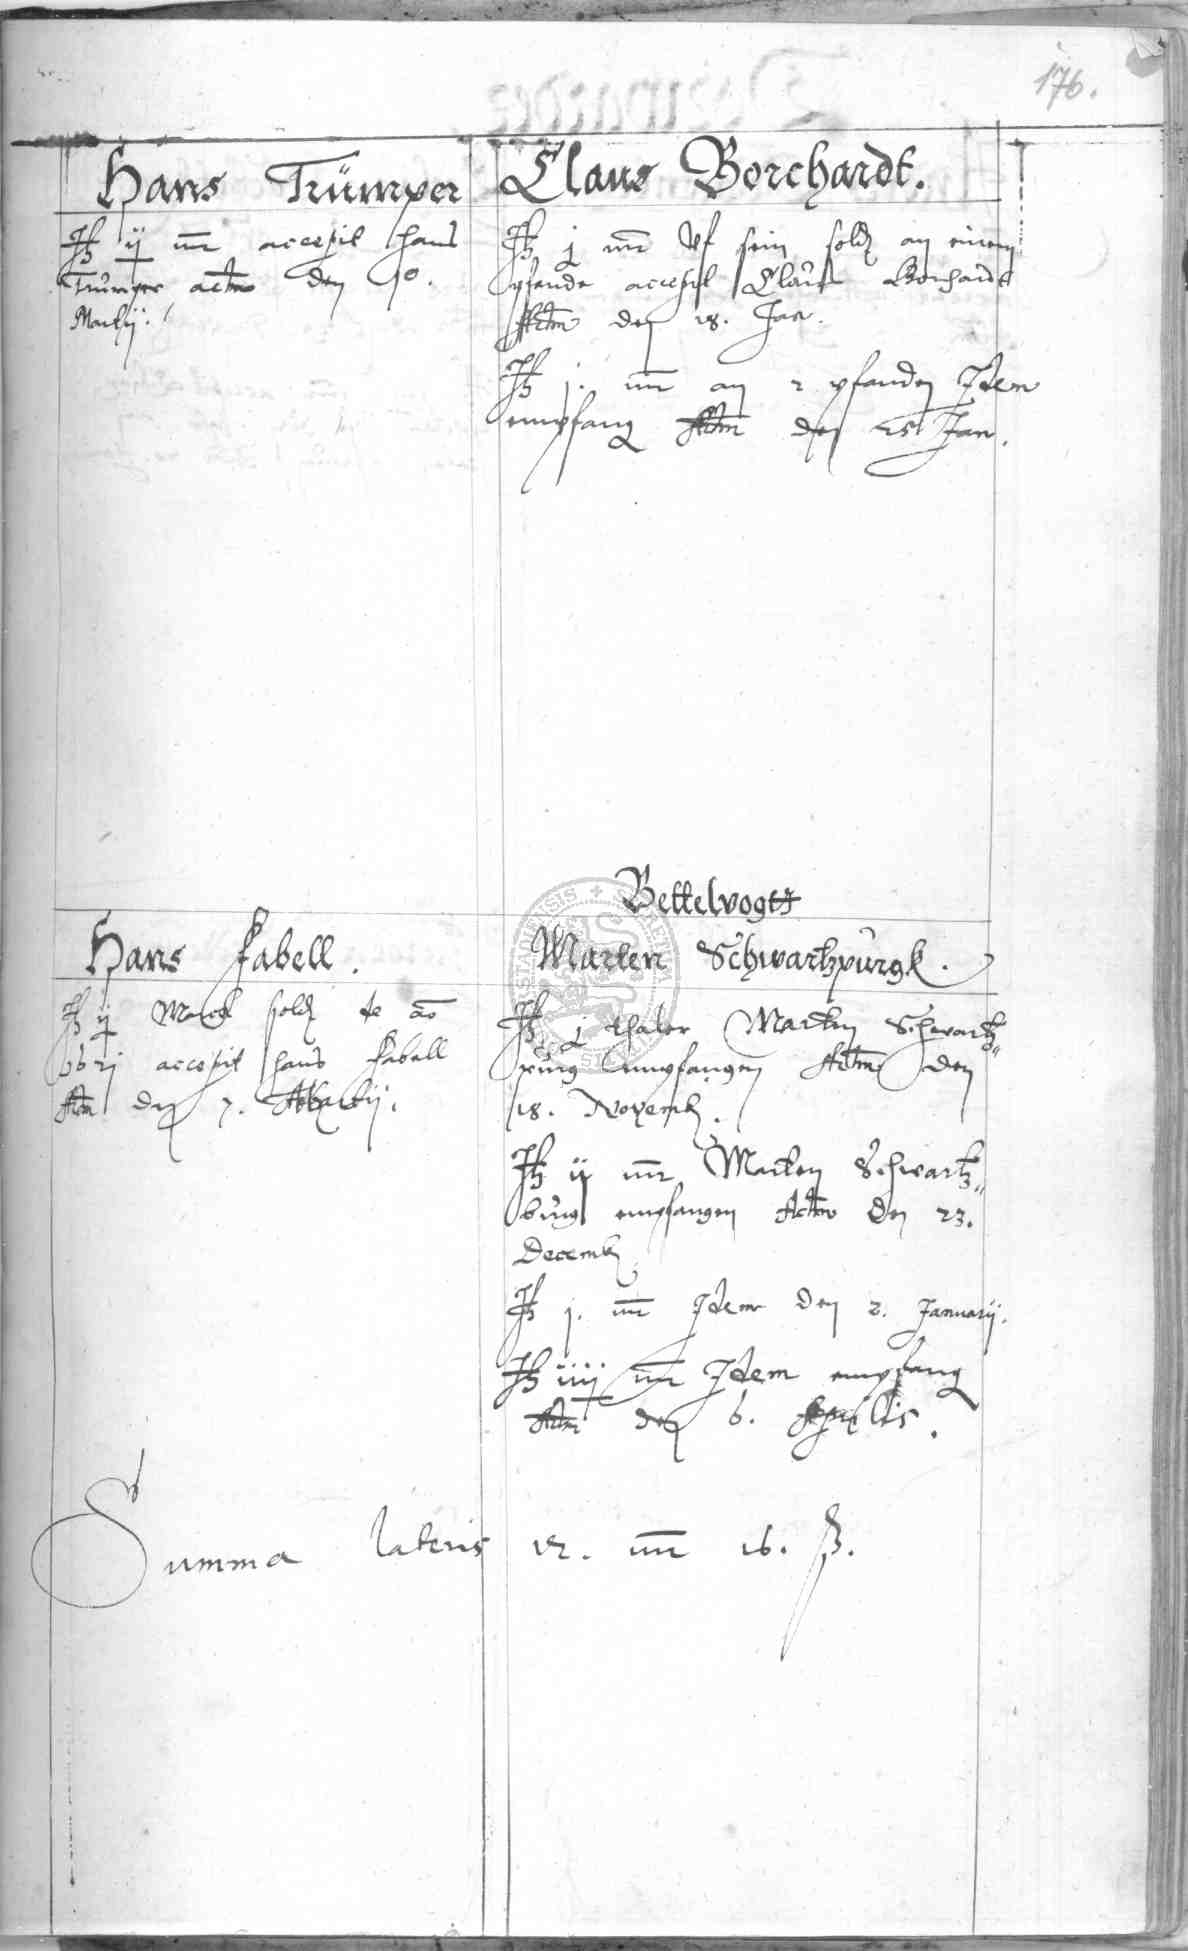 176.
Hans Trümper
It ij mr accepit Hans
Trumper actm den 10.
Martij.
Claus Borchardt.
It j mr vf sein sold an einem
pfande accepit Claus Borchardt
Actm den 18. Jan.
It j. mr an 2 pfanden Item
empfang Actm den 25 Jan.
Hans Fabell.
It ij Marck sold de ao
accepit Hans Fabell
Actm den 7. Martij.
Bettelvogtt
Marten Schwartzpurgk.
It j thaler Marten Schwartz„
purg empfangen Actm den
18. Novemb.
It ij mr Marten Schwartz„
burg empfangen Actm den 23.
Decemb
It j. mr Item den 2. Januarij.
It iiij mr Item empfang
Actm den 6. Aprilis.
Summa lateris 12. mr 16. ß.